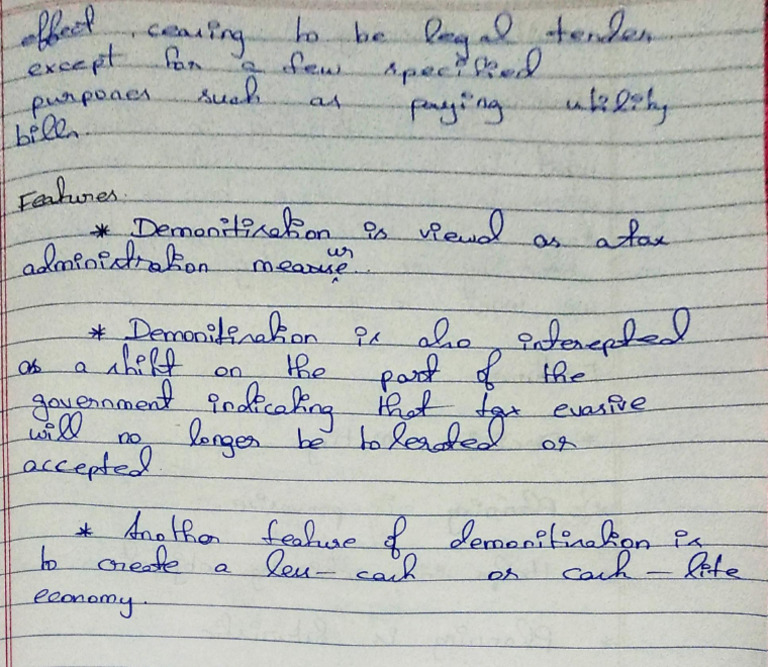 effect ceasing to be legal tender
except for a few specified
purposes such as paying utility
bills.
Features.
* Demonitisation is viewd as a tax
administration measure.
* Demonitisation is also interepted
as a shift on the part of the
government indicating that tax evasive
will no longer be tolerated or
accepted.
* Another feature of demonitisation is
to create a less - cash or cash - lite
economy.